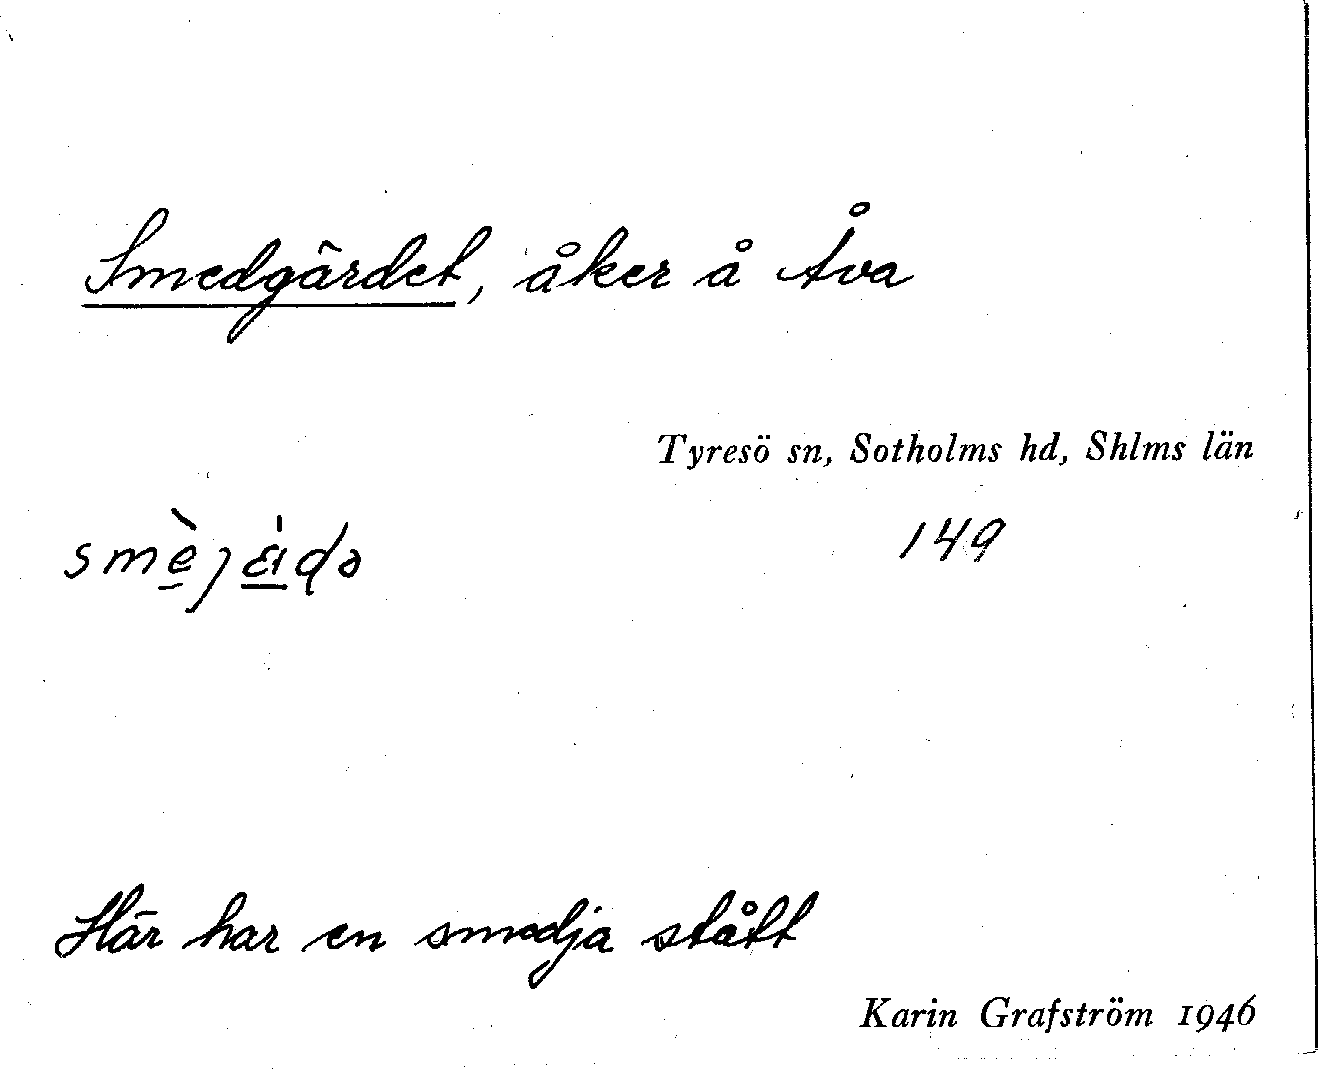 Smedgärdet, åker å Åva
Tyresö sn, Sotholms hd, Shlms län
149
Här har en smedja stått
Karin Grafström 1946